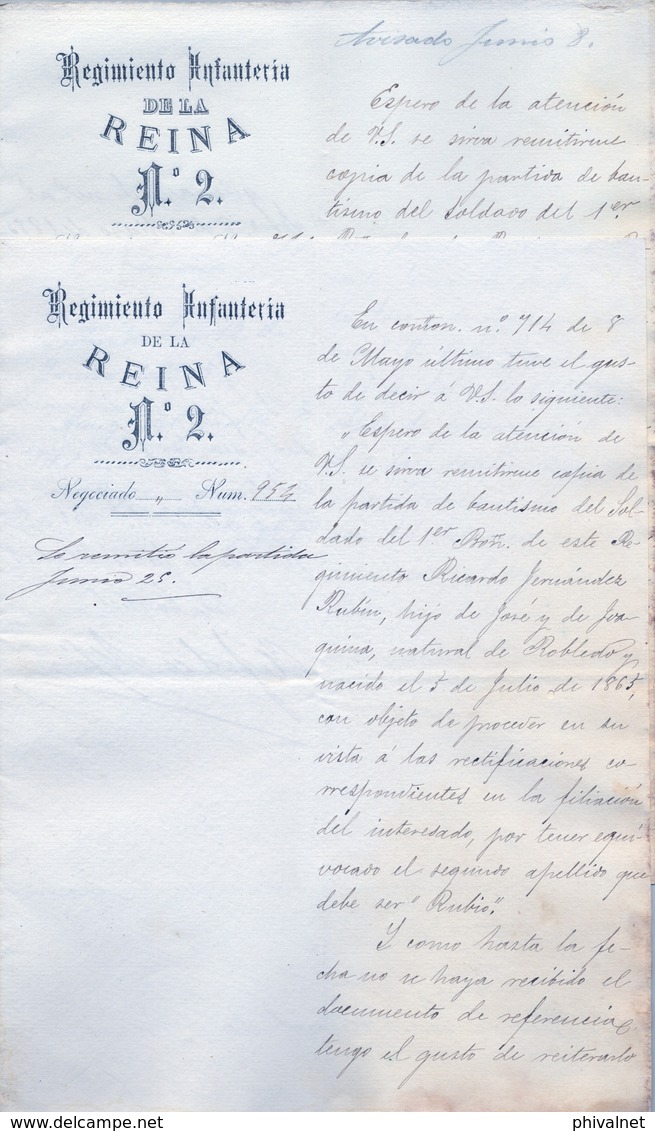 Avisado Junio 8.
Regimiento Infantería
DE LA
REINA
N.º 2.
Espero de la atención
de V.S. se sirva remitirme
copia de la partida de bau-
tismo del soldado del 1er
Regimiento Infantería
DE LA
REINA
N.º 2.
Negociado „ Num. 952
Se remitió la partida
Junio 25.
En conton. nº. 714 de 8
de Mayo último tuve el gus-
to de decir á V.S. lo siguiente:
"Espero de la atención de
V.S. se sirva remitirme copia de
la partida de bautismo del Sol-
dado del 1er Bon. de este Re-
gimiento Ricardo Fernández
Rubín, hijo de José y de Joa-
quina, natural de Robledo y
nacido el 5 de Julio de 1865,
con objeto de proceder en su
vista á las rectificaciones co-
rrespondientes en la filiación
del interesado, por tener equi-
vocado el segundo apellido que
debe ser "Rubio".
Y como hasta la fe-
cha no se haya recibido el
documento de referencia
tengo el gusto de reiterarlo
delcampe.net
phivalnet